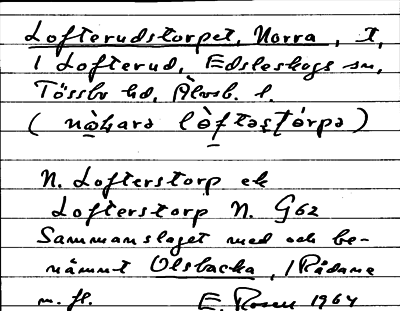 Lofterudstorpet, Norra, T,
i Lofterud, Edsleskogs sn,
Tössbo hd, Älvsb. l.
(nòḥarə lòftəṣṭórpə)
N. Lofterstorp ek
Lofterstorp N. G62
Sammanslaget med och be-
nämnt Olsbacka, i Rådane
m. fl. E. Rosell 1964